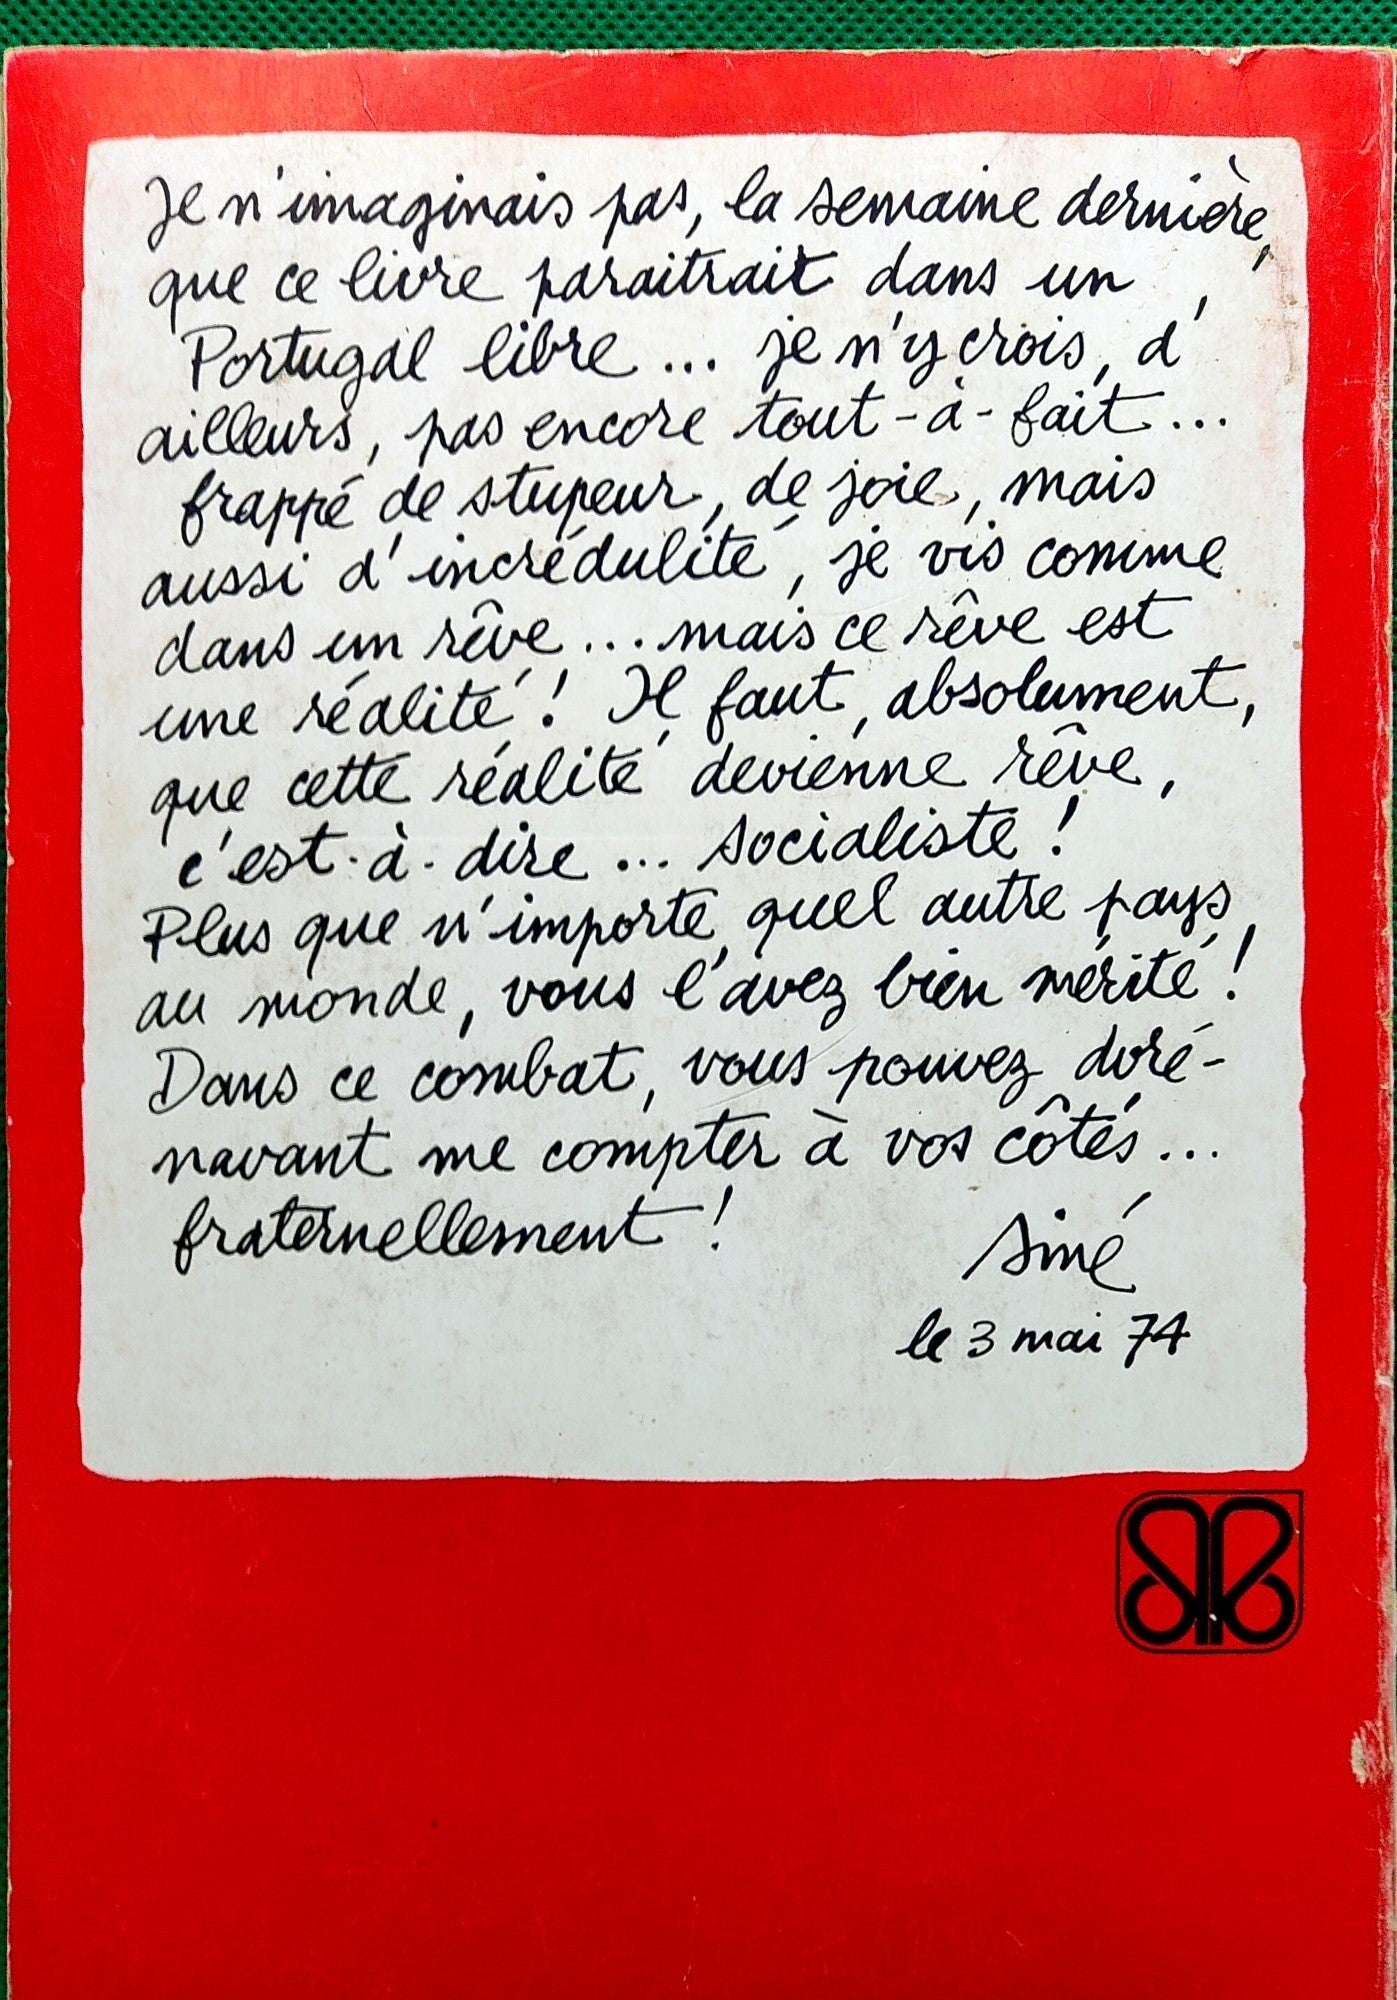 Je n'imaginais pas, la semaine dernière,
que ce livre paraitrait dans un
Portugal libre... je n'y crois, d'
ailleurs, pas encore tout-à-fait...
frappé de stupeur, de joie, mais
aussi d'incrédulité, je vis comme
dans un rêve... mais ce rêve est
une réalité! Il faut, absolument,
que cette réalité devienne rêve,
c'est-à-dire... socialiste!
Plus que n'importe quel autre pays
au monde, vous l'avez bien mérité!
Dans ce combat, vous pouvez doré-
navant me compter à vos côtés...
fraternellement!
Siné
le 3 mai 74